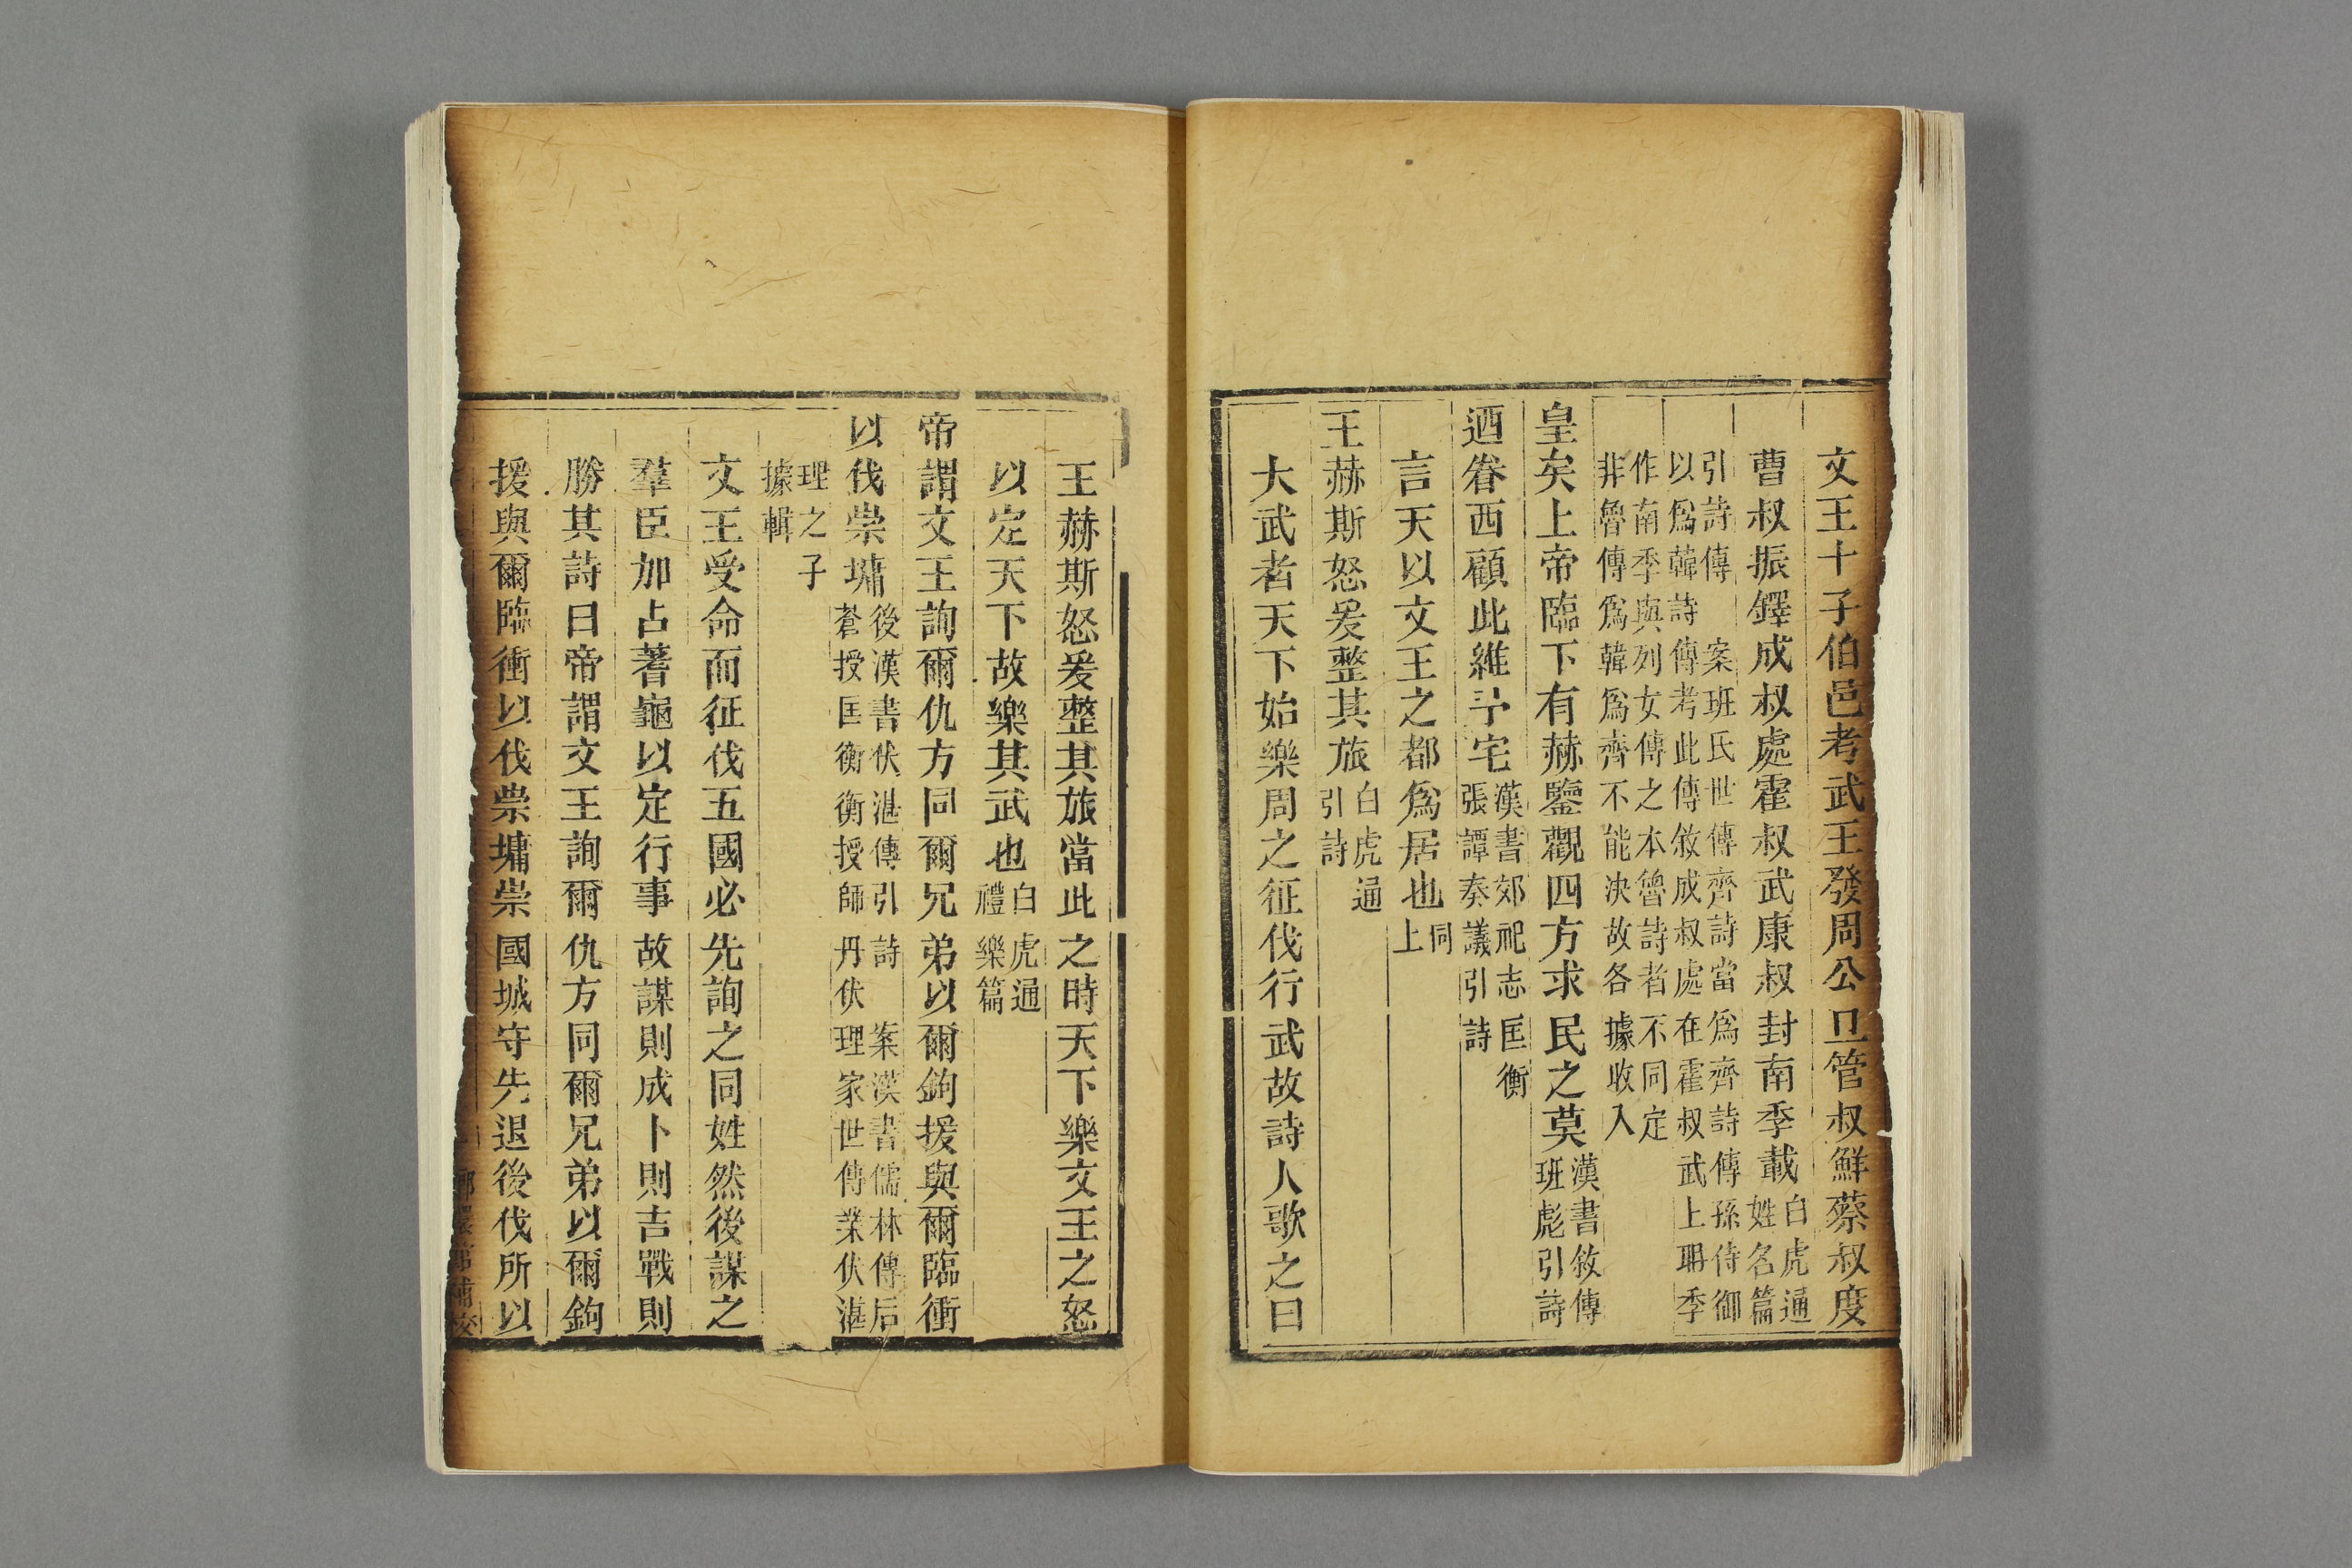 文王十子伯邑考武王發周公旦管叔鮮蔡叔度
曹叔振鐸成叔處霍叔武康叔封南季載白虎通姓名篇
引詩傳 案班氏世傳齊詩當爲齊詩傳孫侍御
以爲韓詩傳考此傳敘成叔處在霍叔武上耼季
作南季與列女傳之本魯詩者不同定
非魯傳爲韓爲齊不能決故各據收入
皇矣上帝臨下有赫鑒觀四方求民之莫漢書敘傳班彪引詩
迺眷西顧此維予宅漢書郊祀志匡衡張譚奏議引詩
言天以文王之都爲居也同上
王赫斯怒爰整其旅白虎通引詩
大武者天下始樂周之征伐行武故詩人歌之曰
王赫斯怒爰整其旅當此之時天下樂文王之怒
以定天下故樂其武也白虎通禮樂篇
帝謂文王詢爾仇方同爾兄弟以爾鉤援與爾臨衝
以伐崇墉後漢書伏湛傳引詩 案漢書儒林傳后
蒼授匡衡衡授師丹伏理家世傳業伏湛
理之子
據輯
文王受命而征伐五國必先詢之同姓然後謀之
羣臣加占蓍龜以定行事故謀則成卜則吉戰則
勝其詩曰帝謂文王詢爾仇方同爾兄弟以爾鉤
援與爾臨衝以伐崇墉崇國城守先退後伐所以
館補校